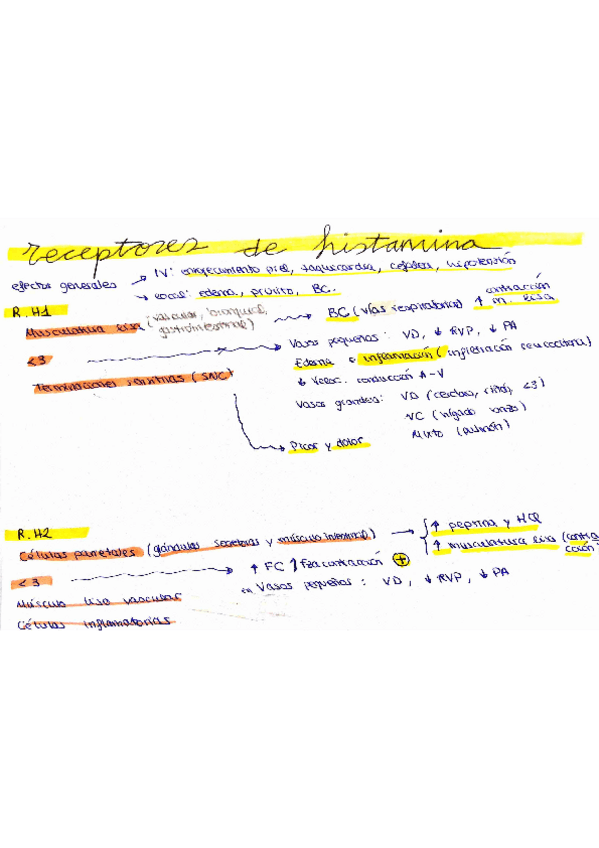 receptores de histamina
efectos generales → IV: enrojecimiento piel, taquicardia, cefalea, hipotensión
→ Local: edema, prurito, BC.
R. H1
Musculatura lisa (vascular, bronquial, gastrointestinal) → BC (vías respiratorias) ↑ contracción m. lisa
<3 → Vasos pequeños: VD, ↓ RVP, ↓ PA
Edema e inflamación (infiltración leucocitaria)
Terminaciones (SNC)
↓ Veloc. conducción A-V
Vasos grandes: VD (cerebro, riñón, <3)
VC (hígado)
Mixto (pulmón)
→ Picor y dolor
R. H2
Células parietales (glándulas secretoras y músculo intestinal) → { ↑ pepsina y HCl
↑ musculatura lisa (contracción)
<3 → ↑ FC ↑ fza contracción +
en Vasos pequeños: VD, ↓ RVP, ↓ PA
Músculo liso vascular
Células inflamatorias